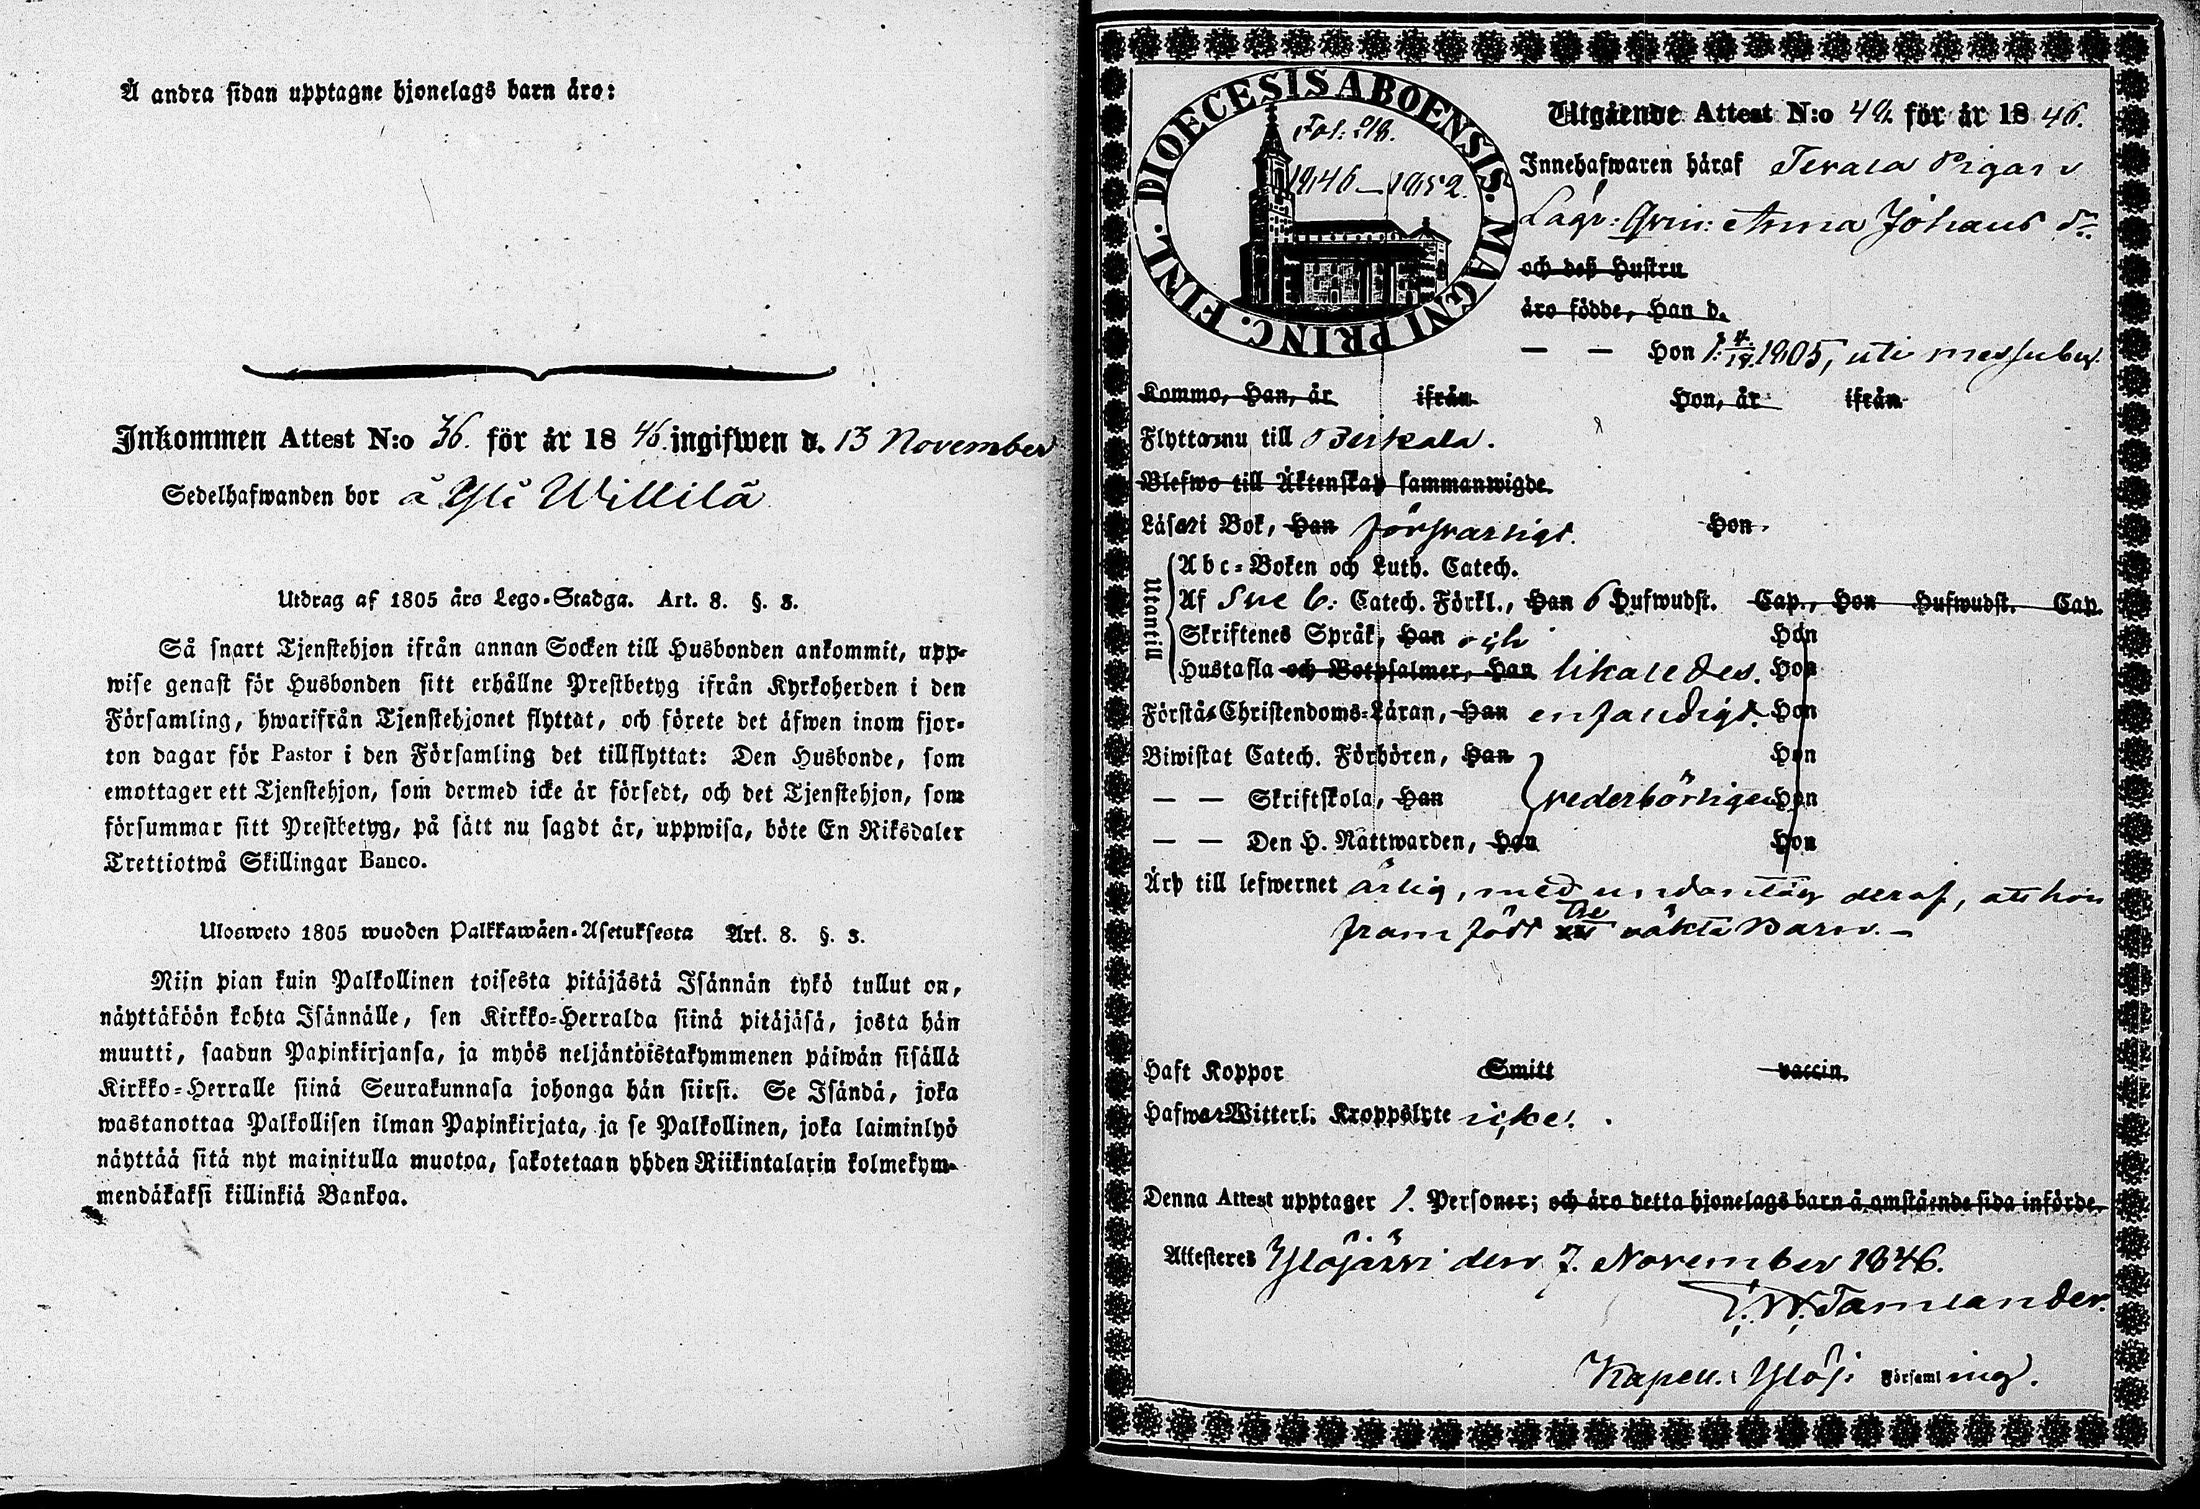 Å andra sidan upptagne hjonelags barn äro:
Inkommen Attest N:o 36. för år 18 46. ingifwen d. 13 November
Sedelhafwanden bor å Yli Willilä
Utdrag af 1805 års Lego-Stadga. Art. 8. §. 3.
Så snart Tjenstehjon ifrån annan Socken till Husbonden ankommit, upp-
wise genast för Husbonden sitt erhållne Prestbetyg ifrån Kyrkoherden i den
Församling, hwarifrån Tjenstehjonet flyttat, och förete det äfwen inom fjor-
ton dagar för Pastor i den Församling det tillflyttat: Den Husbonde, som
emottager ett Tjenstehjon, som dermed icke är försedt, och det Tjenstehjon, som
försummar sitt Prestbetyg, på sätt nu sagdt är, uppwisa, böte En Riksdaler
Trettiotwå Skillingar Banco.
Ulosweto 1805 wuoden Palkkawäen-Asetuksesta Art. 8. §. 3.
Niin pian kuin Palkollinen toisesta pitäjästä Isännän tykö tullut on,
näyttäköön kohta Isännälle, sen Kirkko-Herralda siinä pitäjäsä, josta hän
muutti, saadun Papinkirjansa, ja myös neljäntöistakymmenen päiwän sisällä
Kirkko-Herralle siinä Seurakunnasa johonga hän siirsi. Se Isändä, joka
wastanottaa Palkollisen ilman Papinkirjata, ja se Palkollinen, joka laiminlyö
näyttää sitä nyt mainitulla muotoa, sakotetaan yhden Riikintalarin kolmekym-
mendäkaksi killinkiä Bankoa.
DIOECESIS ABOENSIS. MAGNI PRINC. FINL.
Fol: 218.
1846-1852.
Utgående Attest N:o 49. för år 18 46.
Innehafwaren häraf Pigan
Anna Johans dr
och deß Hustru
äro födde, Han d.
— — Hon 1805, uti messuby.
Kommo, Han, år ifrån Hon, år ifrån
Flyttar nu till Birkala.
Blefwo till Äktenskap sammanwigde.
Läser i Bok, Han försvarligt. Hon.
Utantill
Abc-Boken och Luth. Catech.
Af Sve b: Catech. Förkl., Han 6 Hufwudst. Cap., Hon Hufwudst. Cap.
Skriftenes Språk, Han och Hon
Hustafla och Botpsalmer, Han likaledes. Hon
Förstår Christendoms-Läran, Han enfaldigt. Hon
Biwistat Catech. Förhören, Han Hon
— — Skriftskola, Han vederbörligen Hon
— — Den H. Nattwarden, Han Hon
Är till lefwernet ärlig, med undantag deraf, att hon
framfödt tre oäkta Barn. —
Haft Koppor Smitt vaccin.
Hafwer Witterl. Kroppslyte icke.
Denna Attest upptager 1. Personer; och äro detta hjonelags barn å omstående sida införde.
Attesteres Ylöjärvi den 7. November 1846.
Tamlander.
Kapell. i Ylöj. Församling.